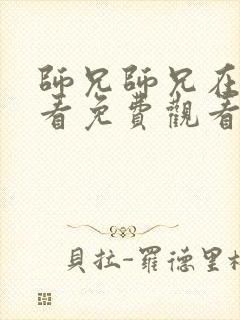 師兄師兄在
看免費觀看
貝拉-羅德里